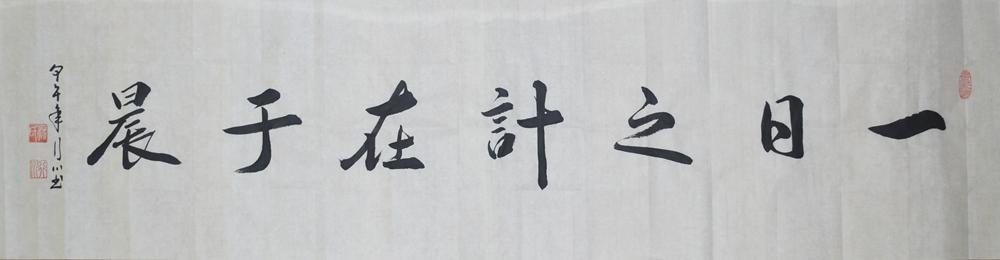 一日之計在于晨
甲午年月川书